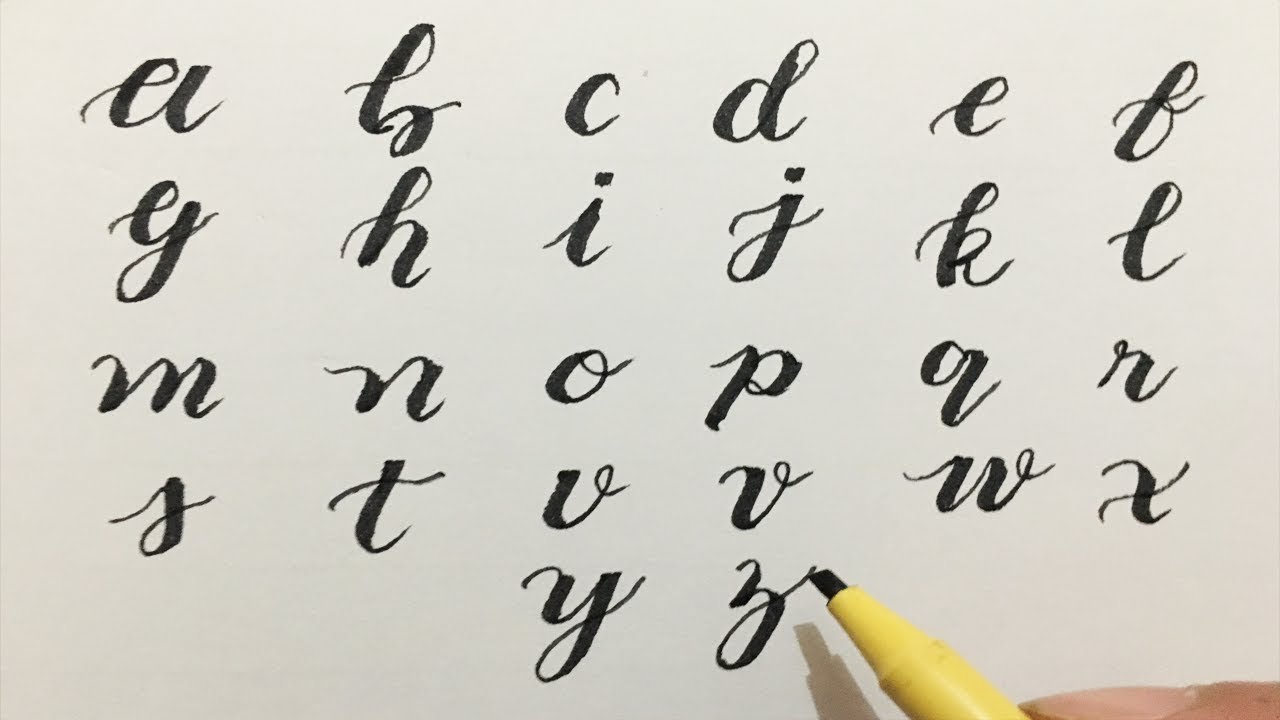 a b c d e f
g h i j k l
m n o p q r
s t v v w x
y z